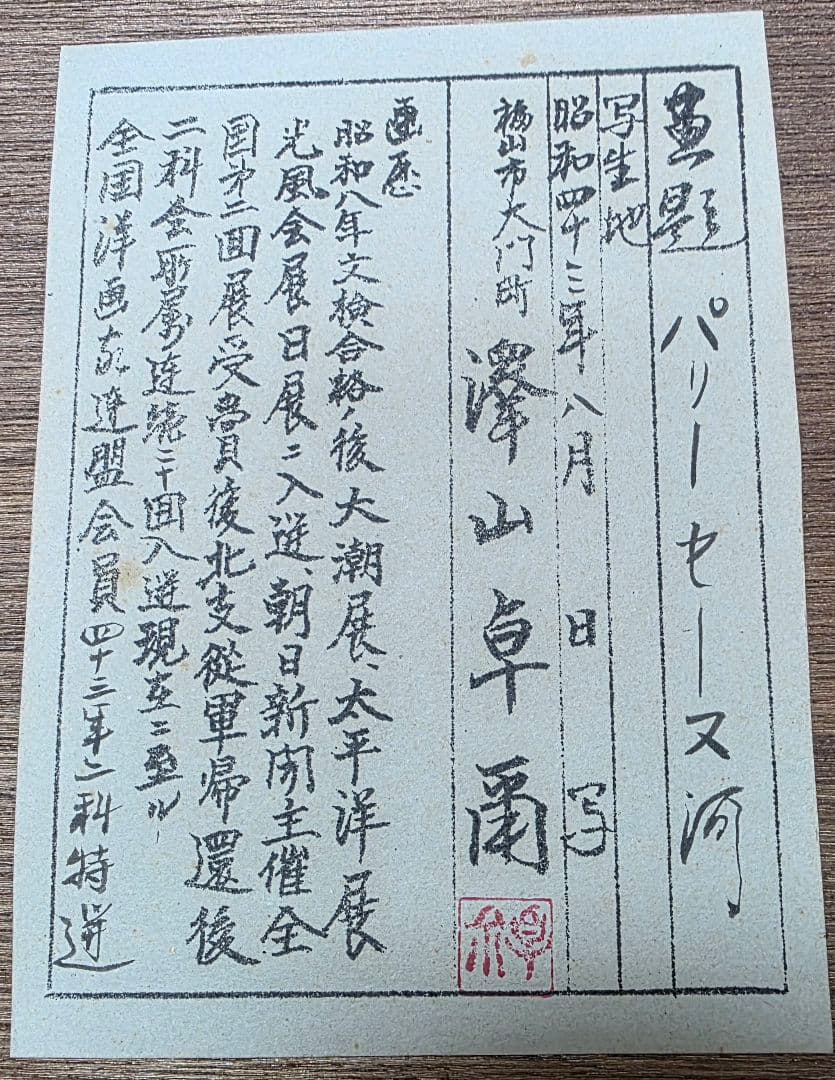 畫題 パリーセーヌ河
写生地
昭和四十三年八月 日 写
福山市大門町 澤山卓爾
画歴
昭和八年文検合格ノ後大潮展、太平洋展
光風会展日展ニ入選、朝日新聞主催全
国第二回展受賞後北支從軍帰還後
二科会所属連続二十回入選現在ニ至ル
全国洋画家連盟会員四十三年二科特選